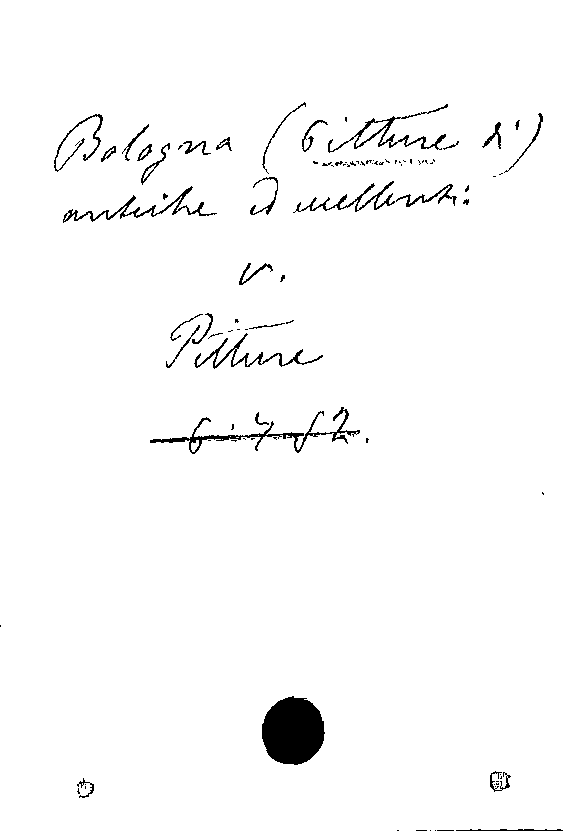 Bologna (Pitture di)
antiche ed eccellenti:
v.
Pitture
6.752.